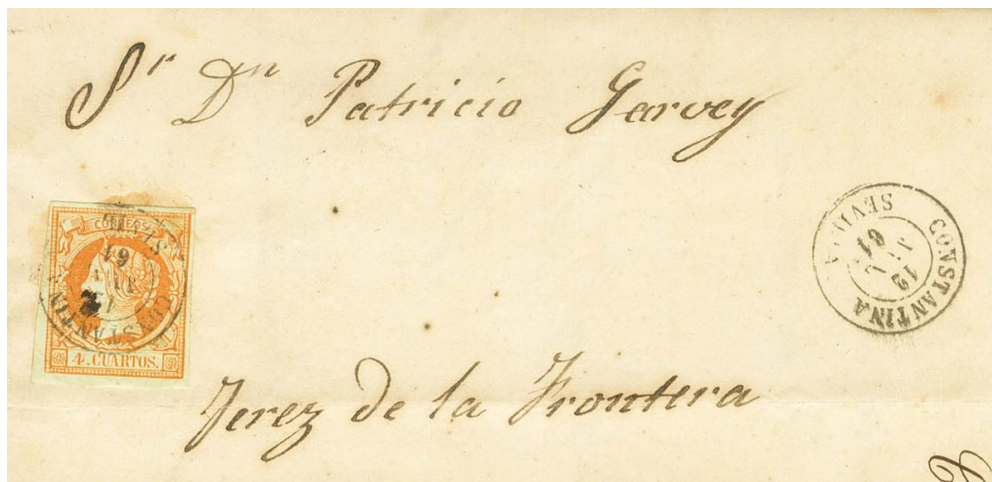 Sr Dn Patricio Garvey
CORREOS
4 CUARTOS.
CONSTANTINA
SEVILLA
12
JUL
61
Jerez de la Frontera